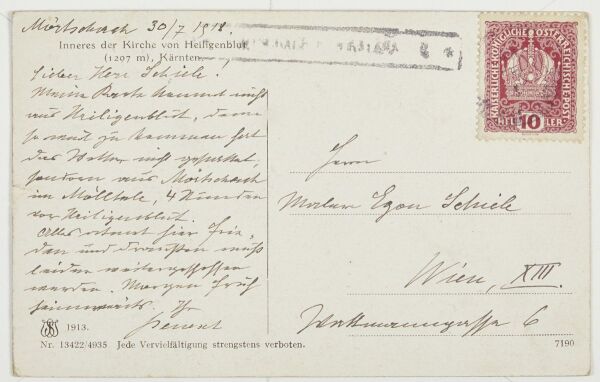 Mörtschach 30/7 1918.
Inneres der Kirche von Heiligenblut
(1297 m), Kärnten.
Lieber Herr Schiele!
Meine Karte kommt nicht
aus Heiligenblut, denn
so weit zu kommen hat
das Wetter nicht gestattet,
sondern aus Mörtschach
im Mölltale, 4 Stunden
vor Heiligenblut.
Alles atmet hier Frie-
den und draußen muß
leider weitergeschossen
werden. Morgen früh
heimwärts. Ihr
1913.
Nr. 13422/4935 Jede Vervielfältigung strengstens verboten.
KAISERLICHE KÖNIGLICHE ÖSTERREICHISCHE POST
HELLER
10
Herrn
Maler Egon Schiele
Wien, XIII.
Wattmanngasse 6
7190